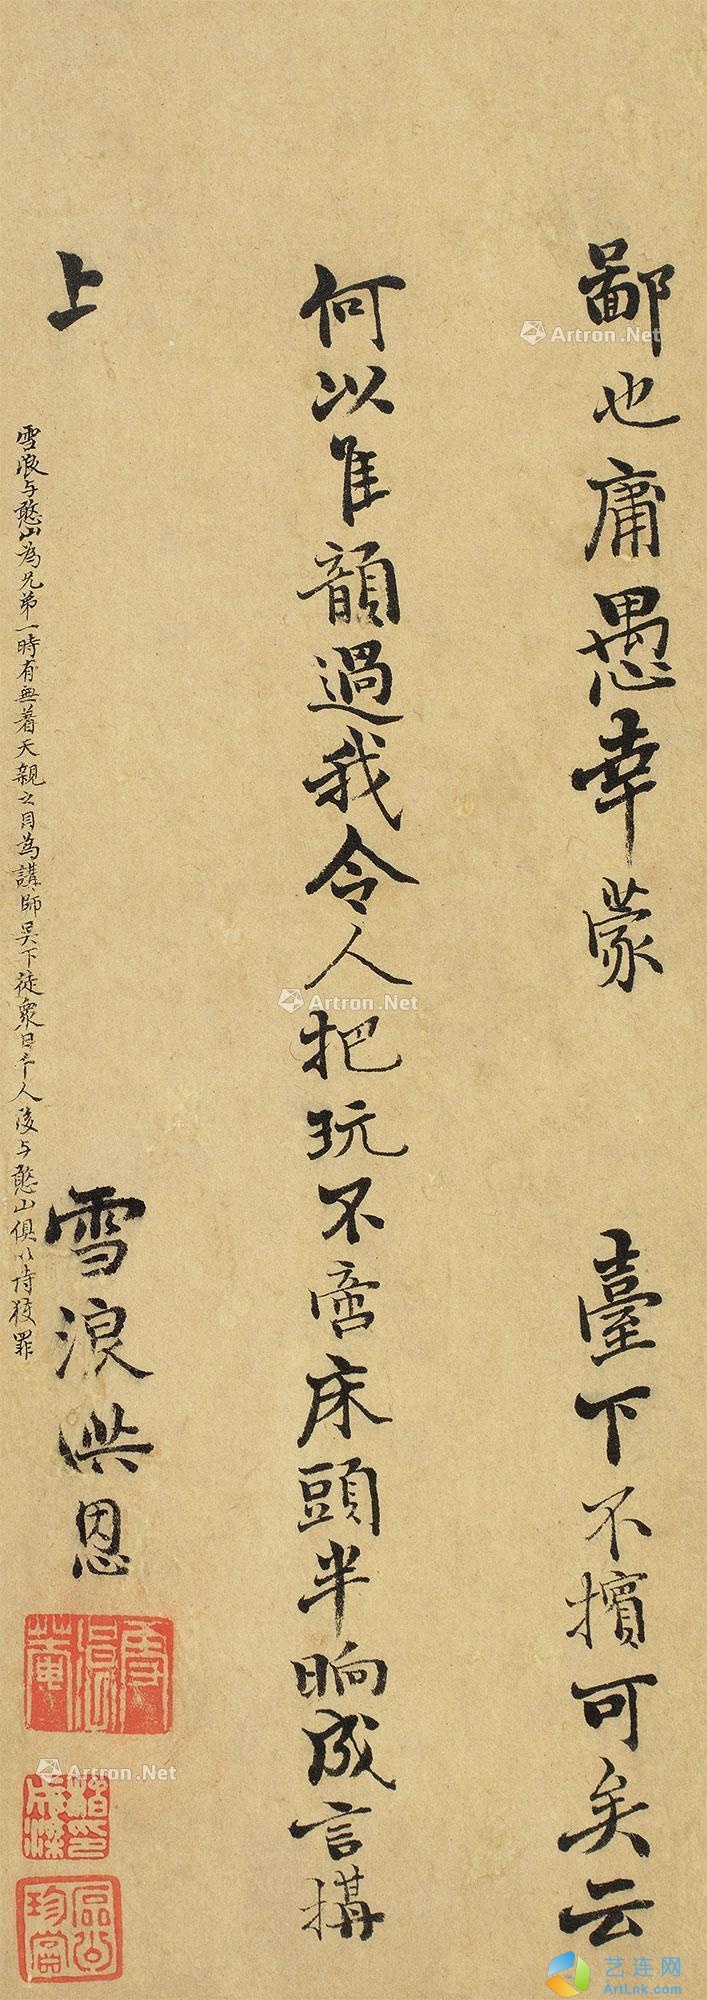 鄙也庸愚幸蒙
臺下不擯可矣云
何以隹韻過我令人把玩不啻床頭半晌成言搆
上
雪浪洪恩
雪浪与憨山為兄弟一時有無着天親之目為講師吳下徒衆日千人後与憨山俱以詩獲罪
雪浪菴
區公珍賞
Artron.Net
Artron.Net
Artron.Net
艺连网
ArtLnk.com